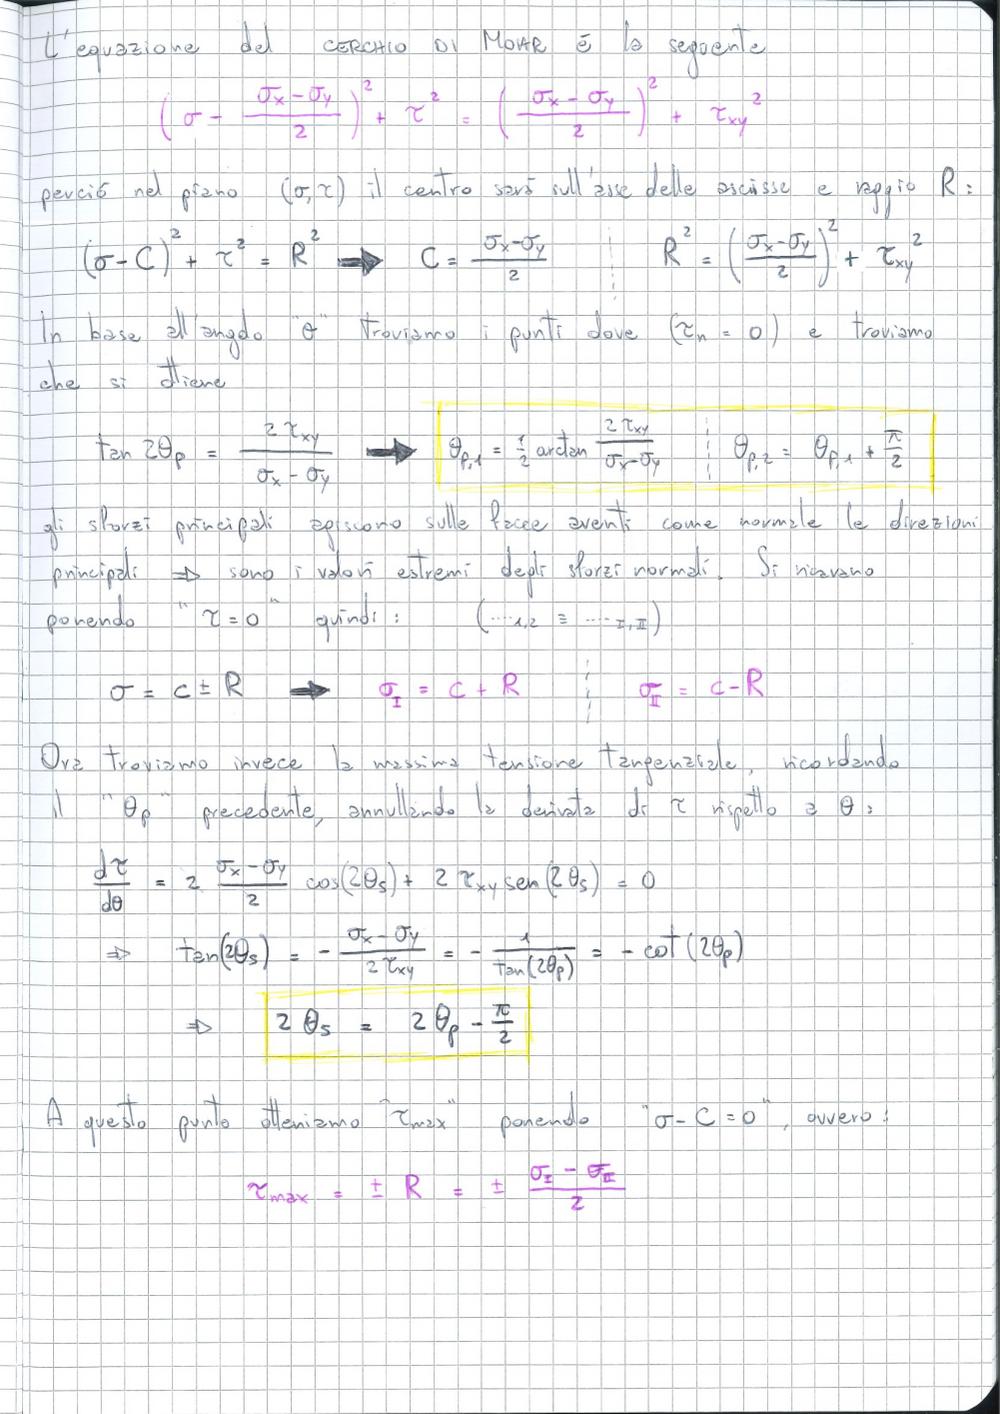 L'equazione del CERCHIO DI MOHR è la seguente
(σ - (σx - σy)/2)² + τ² = ((σx - σy)/2)² + τxy²
perciò nel piano (σ,τ) il centro sarà sull'asse delle ascisse e raggio R:
(σ - C)² + τ² = R² → C = (σx - σy)/2 R² = ((σx - σy)/2)² + τxy²
In base all'angolo "θ" troviamo i punti dove (τn = 0) e troviamo
che si ottiene
tan 2θp = 2τxy/(σx - σy) → θp,1 = 1/2 arctan 2τxy/(σx - σy) θp,2 = θp,1 + π/2
gli sforzi principali agiscono sulle facce aventi come normale le direzioni
principali ⇒ sono i valori estremi degli sforzi normali. Si ricavano
ponendo "τ = 0" quindi: (....1,2 ≡ ....I,II)
σ = C ± R → σI = C + R σII = C - R
Ora troviamo invece la massima tensione tangenziale, ricordando
il "θp" precedente, annullando la derivata di τ rispetto a θ:
dτ/dθ = 2 (σx - σy)/2 cos(2θs) + 2 τxy sen(2θs) = 0
⇒ tan(2θs) = - (σx - σy)/(2τxy) = - 1/tan(2θp) = - cot(2θp)
⇒ 2θs = 2θp - π/2
A questo punto otteniamo "τmax" ponendo "σ - C = 0", ovvero:
τmax = ± R = ± (σI - σII)/2